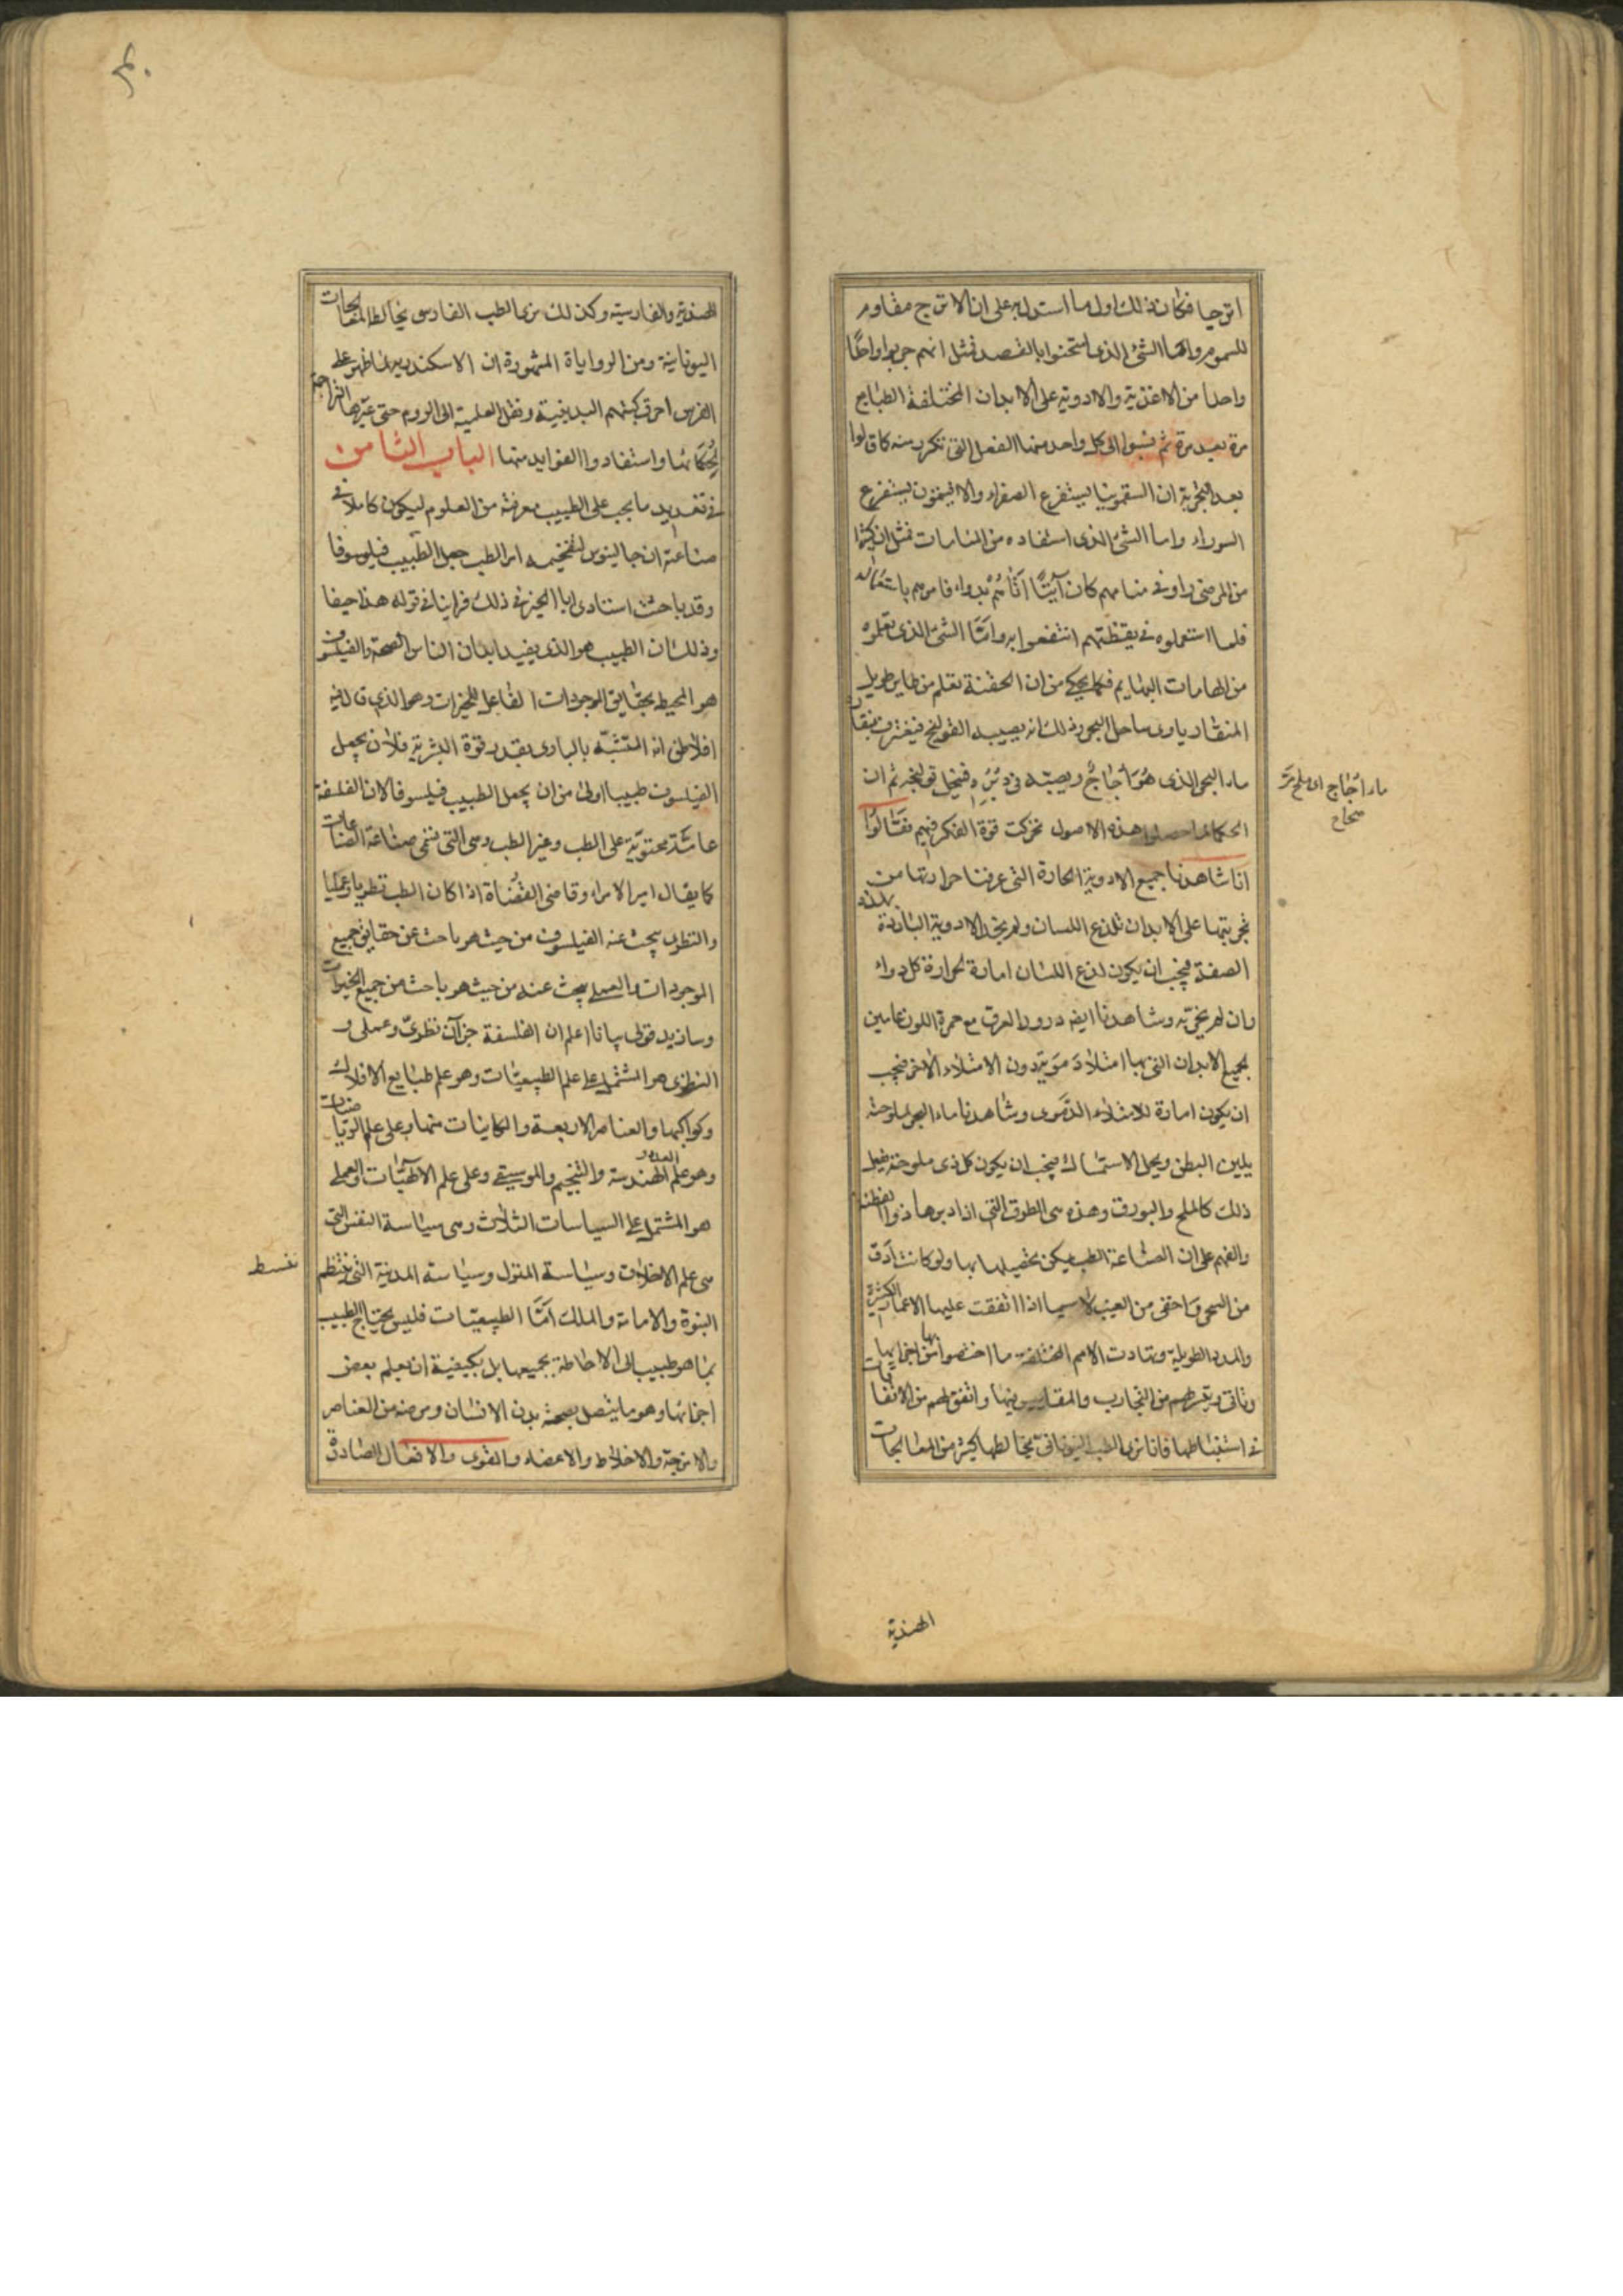 اترجا فكان ذلك اول ما استدل به على ان الاترج مقاوم
للسموم واما الشئ الذى امتحنوا بالقصد فمثل انهم جربوا واحدًا
واحدا من الاغذية والادوية على الابدان المختلفة الطبايع
مرة بعد مرة ثم نسبوا الى كل واحد منها الفعل التى تكرر منه كما قالوا
بعد التجربة ان السقمونيا يستفرع الصفراء والافيمون يستفرع
السوداء واما الشئ الذى استفاده من المنامات فمثل ان كثيرا
من المرضى راو فى منامهم كان آتيًا اتاهم بدواء فامرهم باستعماله
فلما استعملوه فى يقظتهم انتفعوا به وامّا الشئ الذى تعلموه
من الهامات البهايم فكما يحكى من ان الحقنة تعلم من طاير طويل
المنقار ياوى ساحل البحر وذلك انه يصيبه القولنج فيغترف بمنقاره
ماء البحر الذى هُوَ أُجَاجٌ ويصبّه فى دُبُرِه فينحل قولنجه ثم ان
ماء اُجَاج اى ملح مرّ
صحاح
الحكما لما حصلوا هذه الاصول تحركت قوة الفكر فيهم فقالوا
انا شاهدنا جميع الادوية الحارة التى عرفنا حرارتها من
تجربتها على الابدان تلذع اللسان ولم نجد الادوية الباردة بهذه
الصفة فيجب ان يكون لذع اللسان امارة لحرارة كل دواء
وان لم نجرّبه وشاهدنا ايضه درور العرق مع حمرة اللون عامين
لجميع الابدان التى بها امتلاء دموى دون الامتلاء الاخر فيجب
ان يكون امارة للامتلاء الدّموى وشاهدنا ماء البحر لملوحته
يلين البطن ويحل الاستمساك فيجب ان يكون كل ذى ملوحة يفعل
ذلك كالملح والبورق وهذه هى الطرق التى اذا دبرها ذوا الفطنة
والفهم على ان الصناعة الطب يمكن تحصيلها بها ولو كانت ادق
من السحر واخفى من الغيب لاسيما اذا اتفقت عليها الاعمار الكثيرة
والمدد الطويلة وتهادت الامم المختلفة ما اختصوا بها من اجزايها
وتاتى وتقررهم من التجارب والمقاييس فيها واتفق لهم من الاتفاقات
فى استنباطها فانا نرى الطب اليونانى تخالطها كثير من المعالجات
الهندية
الهندية والفارسية وكذلك نرى الطب الفارسى يخالط المعالجات
اليونانية ومن الرواياة المشهورة ان الاسكندر لما ظهر على
الفرس احرق كتبهم الدينية ونقل العلمية الى الروم حتى عبّرها التراجمة
لِحُكَمَائها واستفادوا الفوايد منها الباب الثامن
فى تعديد ما يجب على الطبيب معرفته من العلوم ليكون كاملا فى
صناعته ان جالينوس لتفخيمه امر الطب جعل الطّبيب فيلسوفا
وقد باحث استادى ابا الخير فى ذلك فراينا فى قوله هذا حيفا
وذلك ان الطبيب هو الذى يفيد ابدان الناس الصحة والفيلسوف
هو المحيط بحقايق الموجودات الفاعل للخيرات وهو الذى قال فيه
افلاطن انه المتشبّه بالبارى بقدر قوة البشرية فلان يجعل
الفيلسوف طبيبا اولى من ان يجعل الطبيب فيلسوفا لان الفلسفة
عامّة محتوية على الطب وغير الطب وهى التى تنتمى صناعة الصناعات
كما يقال امير الامراء وقاضى القضاة اذا كان الطب نظريا وعمليا
والنظرى يبحث عنه الفيلسوف من حيث هو باحث عن حقايق جميع
الموجودات والعملى يبحث عنه من حيث هو باحث من جميع الخيرات
وسازيد قولى بيانا اعلم ان الفلسفة جزآن نظرىّ وعملى و
النظرى هو المشتمل على علم الطبيعيات وهو علم طبايع الافلاك
وكواكبها والعناصر الاربعة والكاينات منها وعلى علم الرياضيات
وهو علم العدد والهندسة والتنجيم والموسيقى وعلى علم الالهيّات والعملى
هو المشتمل على السياسات الثلاث وهى سياسة النفس التى
هى علم الاخلاق وسياسة المنزل وسياسة المدنية التى تنتظم
البنوة والامامة والملك امّا الطبيعيّات فليس يحتاج الطبيب
بما هو طبيب الى الاحاطة بجميعها بل بكيفية ان يعلم بعض
اجزائها وهو ما يتصل بصحة بدن الانسان ومرضه من العناصر
والامزجة والاخلاط والاعضاء والقوى والافعال الصادرة